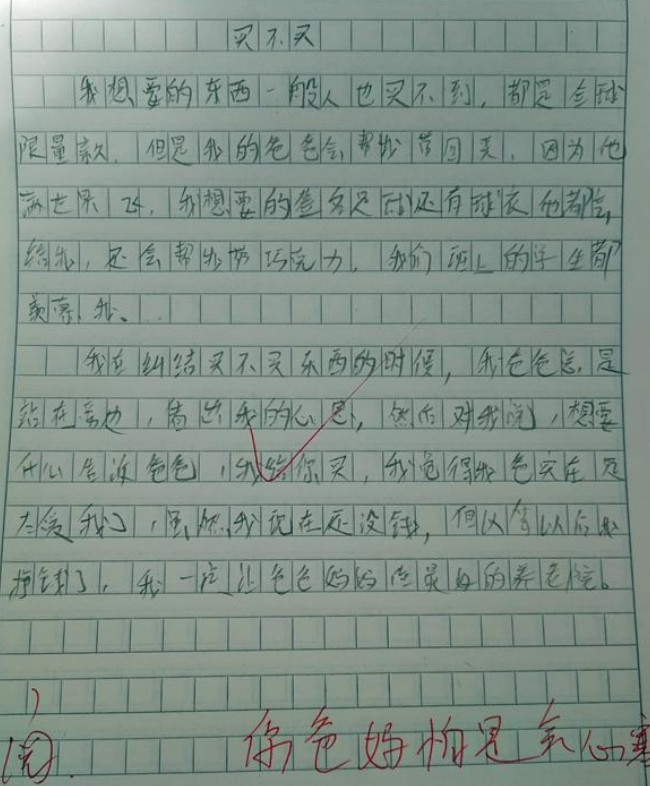 买不买
我想要的东西一般人也买不到,都是全球
限量款,但是我的色色会帮我带回来,因为他
满世界飞,我想要的签名足球还有球衣他都会
给我,还会帮我带巧克力,我们班上的学生都
羡慕我。
我在纠结买不买东西的时候,我色色总是
站在旁边,看出我的心思,然后对我说,想要
什么告诉色色,我给你买,我觉得我色实在是
太爱我了,虽然我现在还没钱,但以后
挣钱了,我一定让色色妈妈住最好的养老院。
你色好怕是会心寒
阅